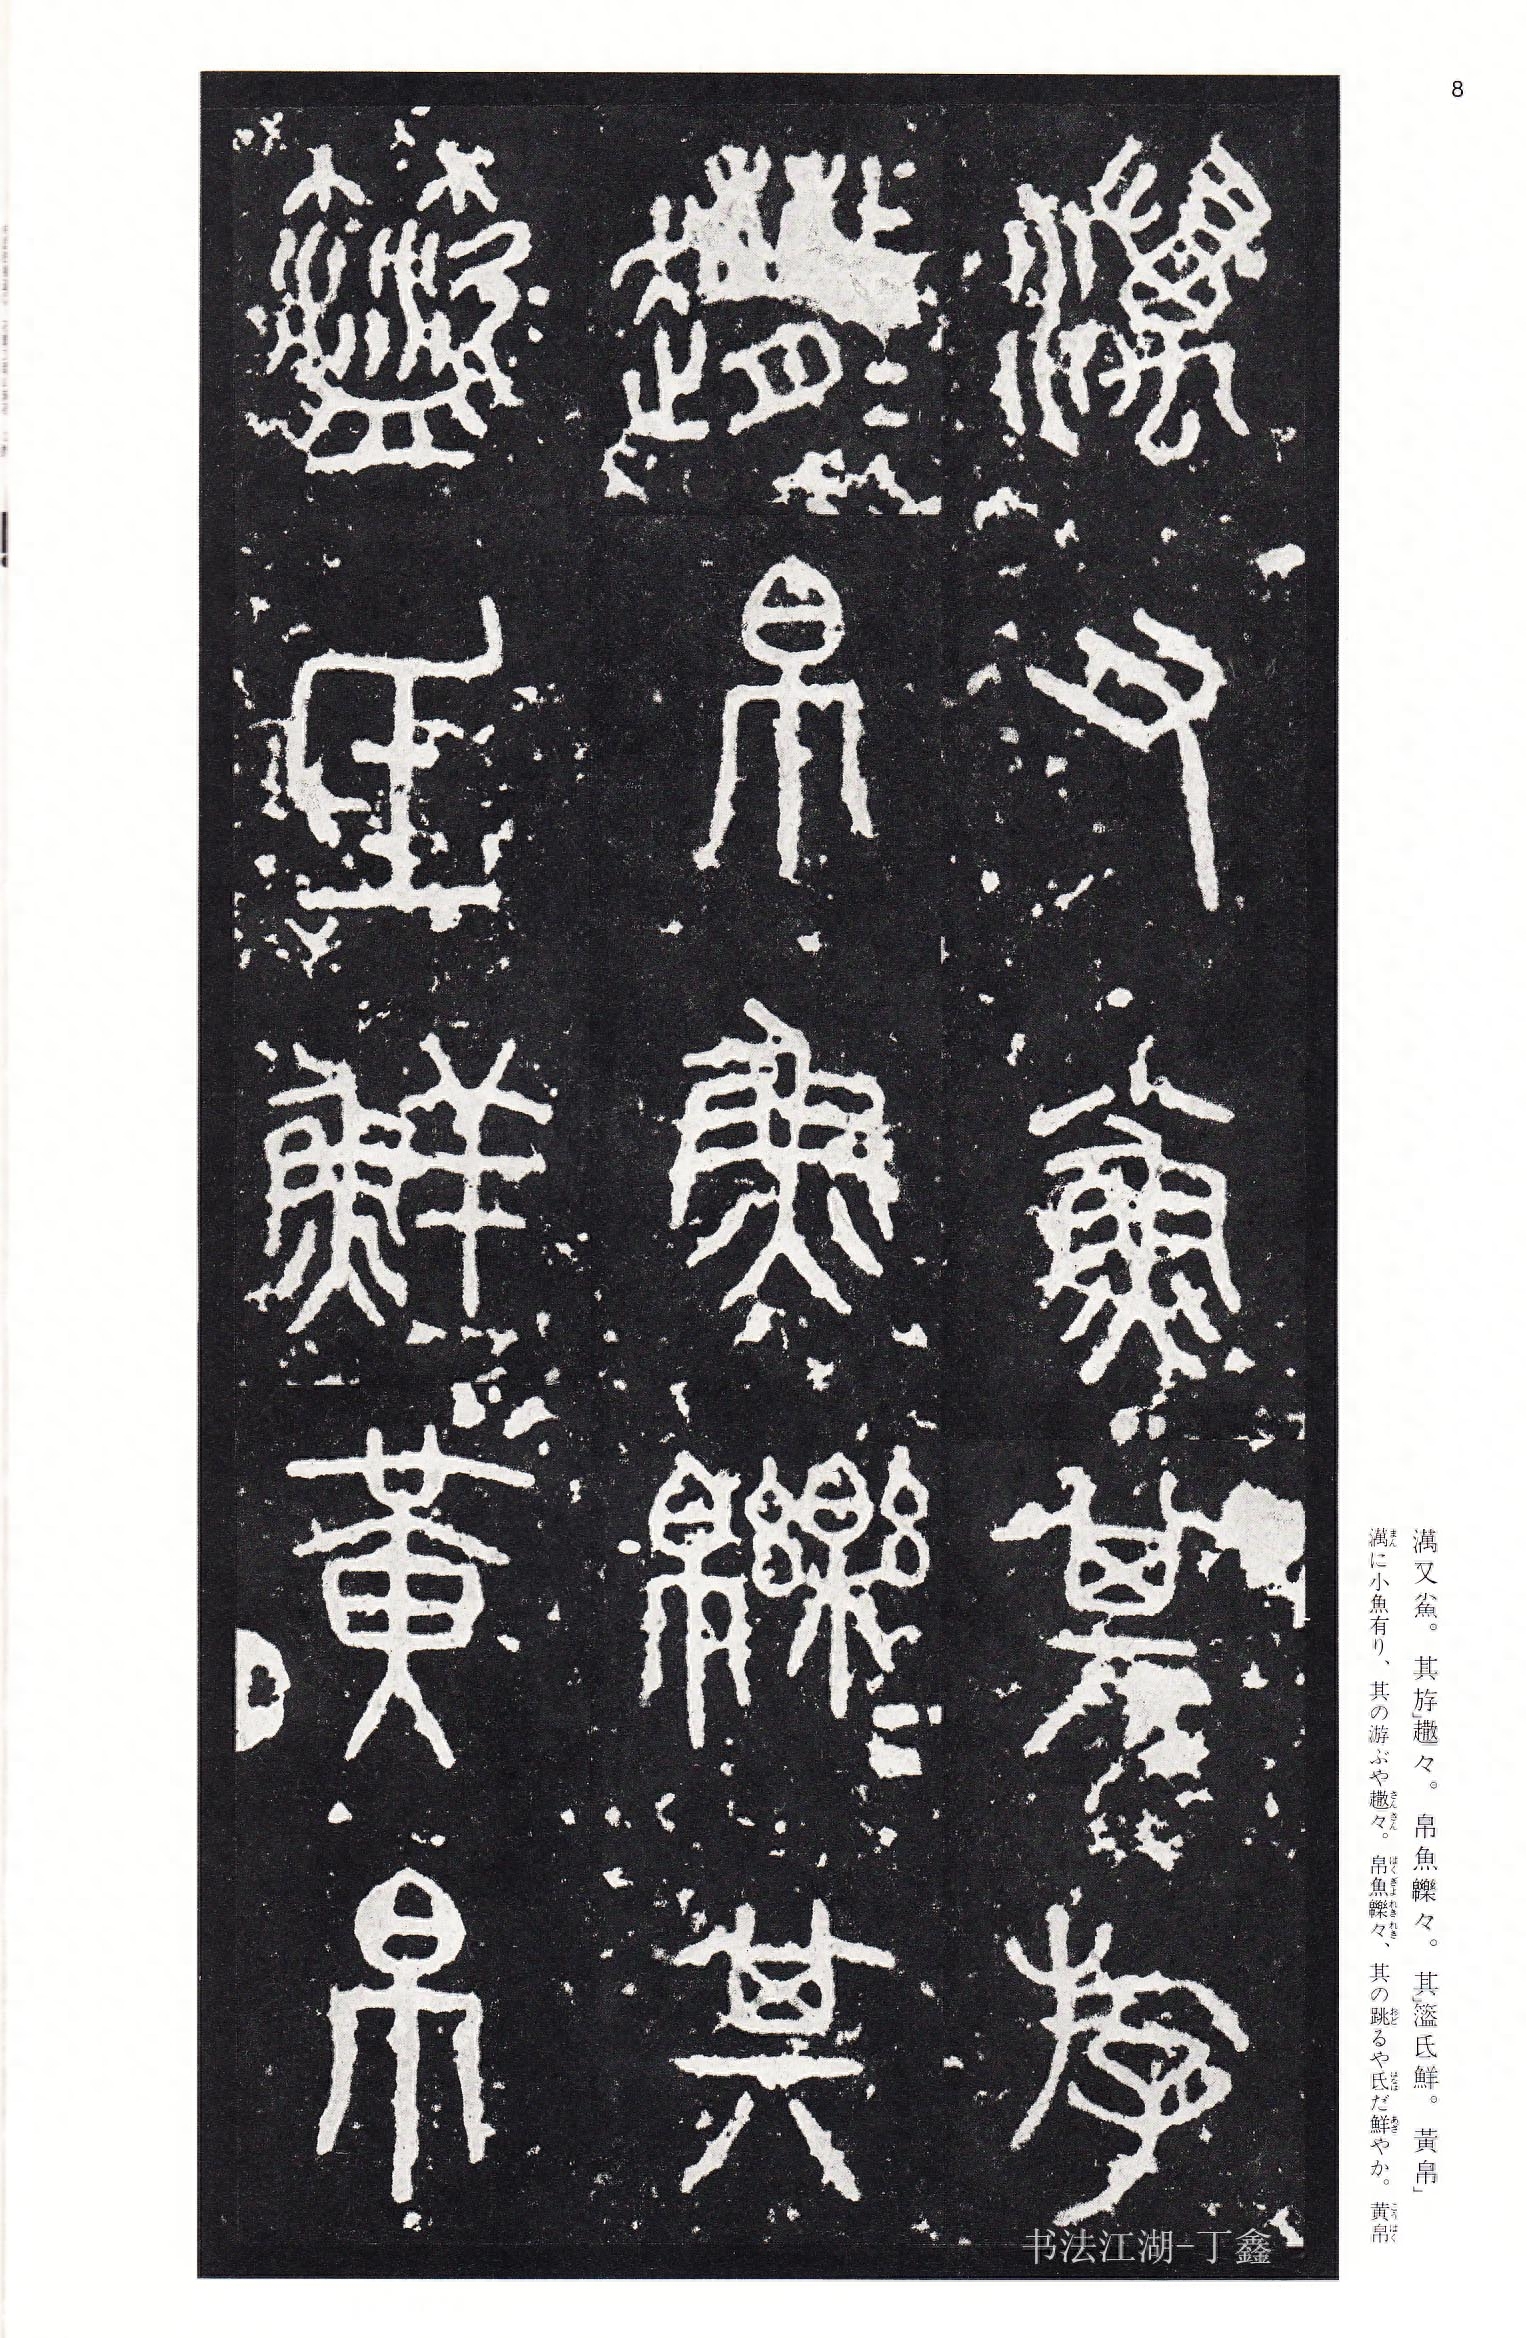 8
澫又𩵖。其斿」趲々。帛魚皪々。其」盜氏鮮。黃帛」
澫に小魚有り、其の游ぶや趲々。帛魚皪々、其の跳るや氐だ鮮やか。黄帛
书法江湖-丁鑫